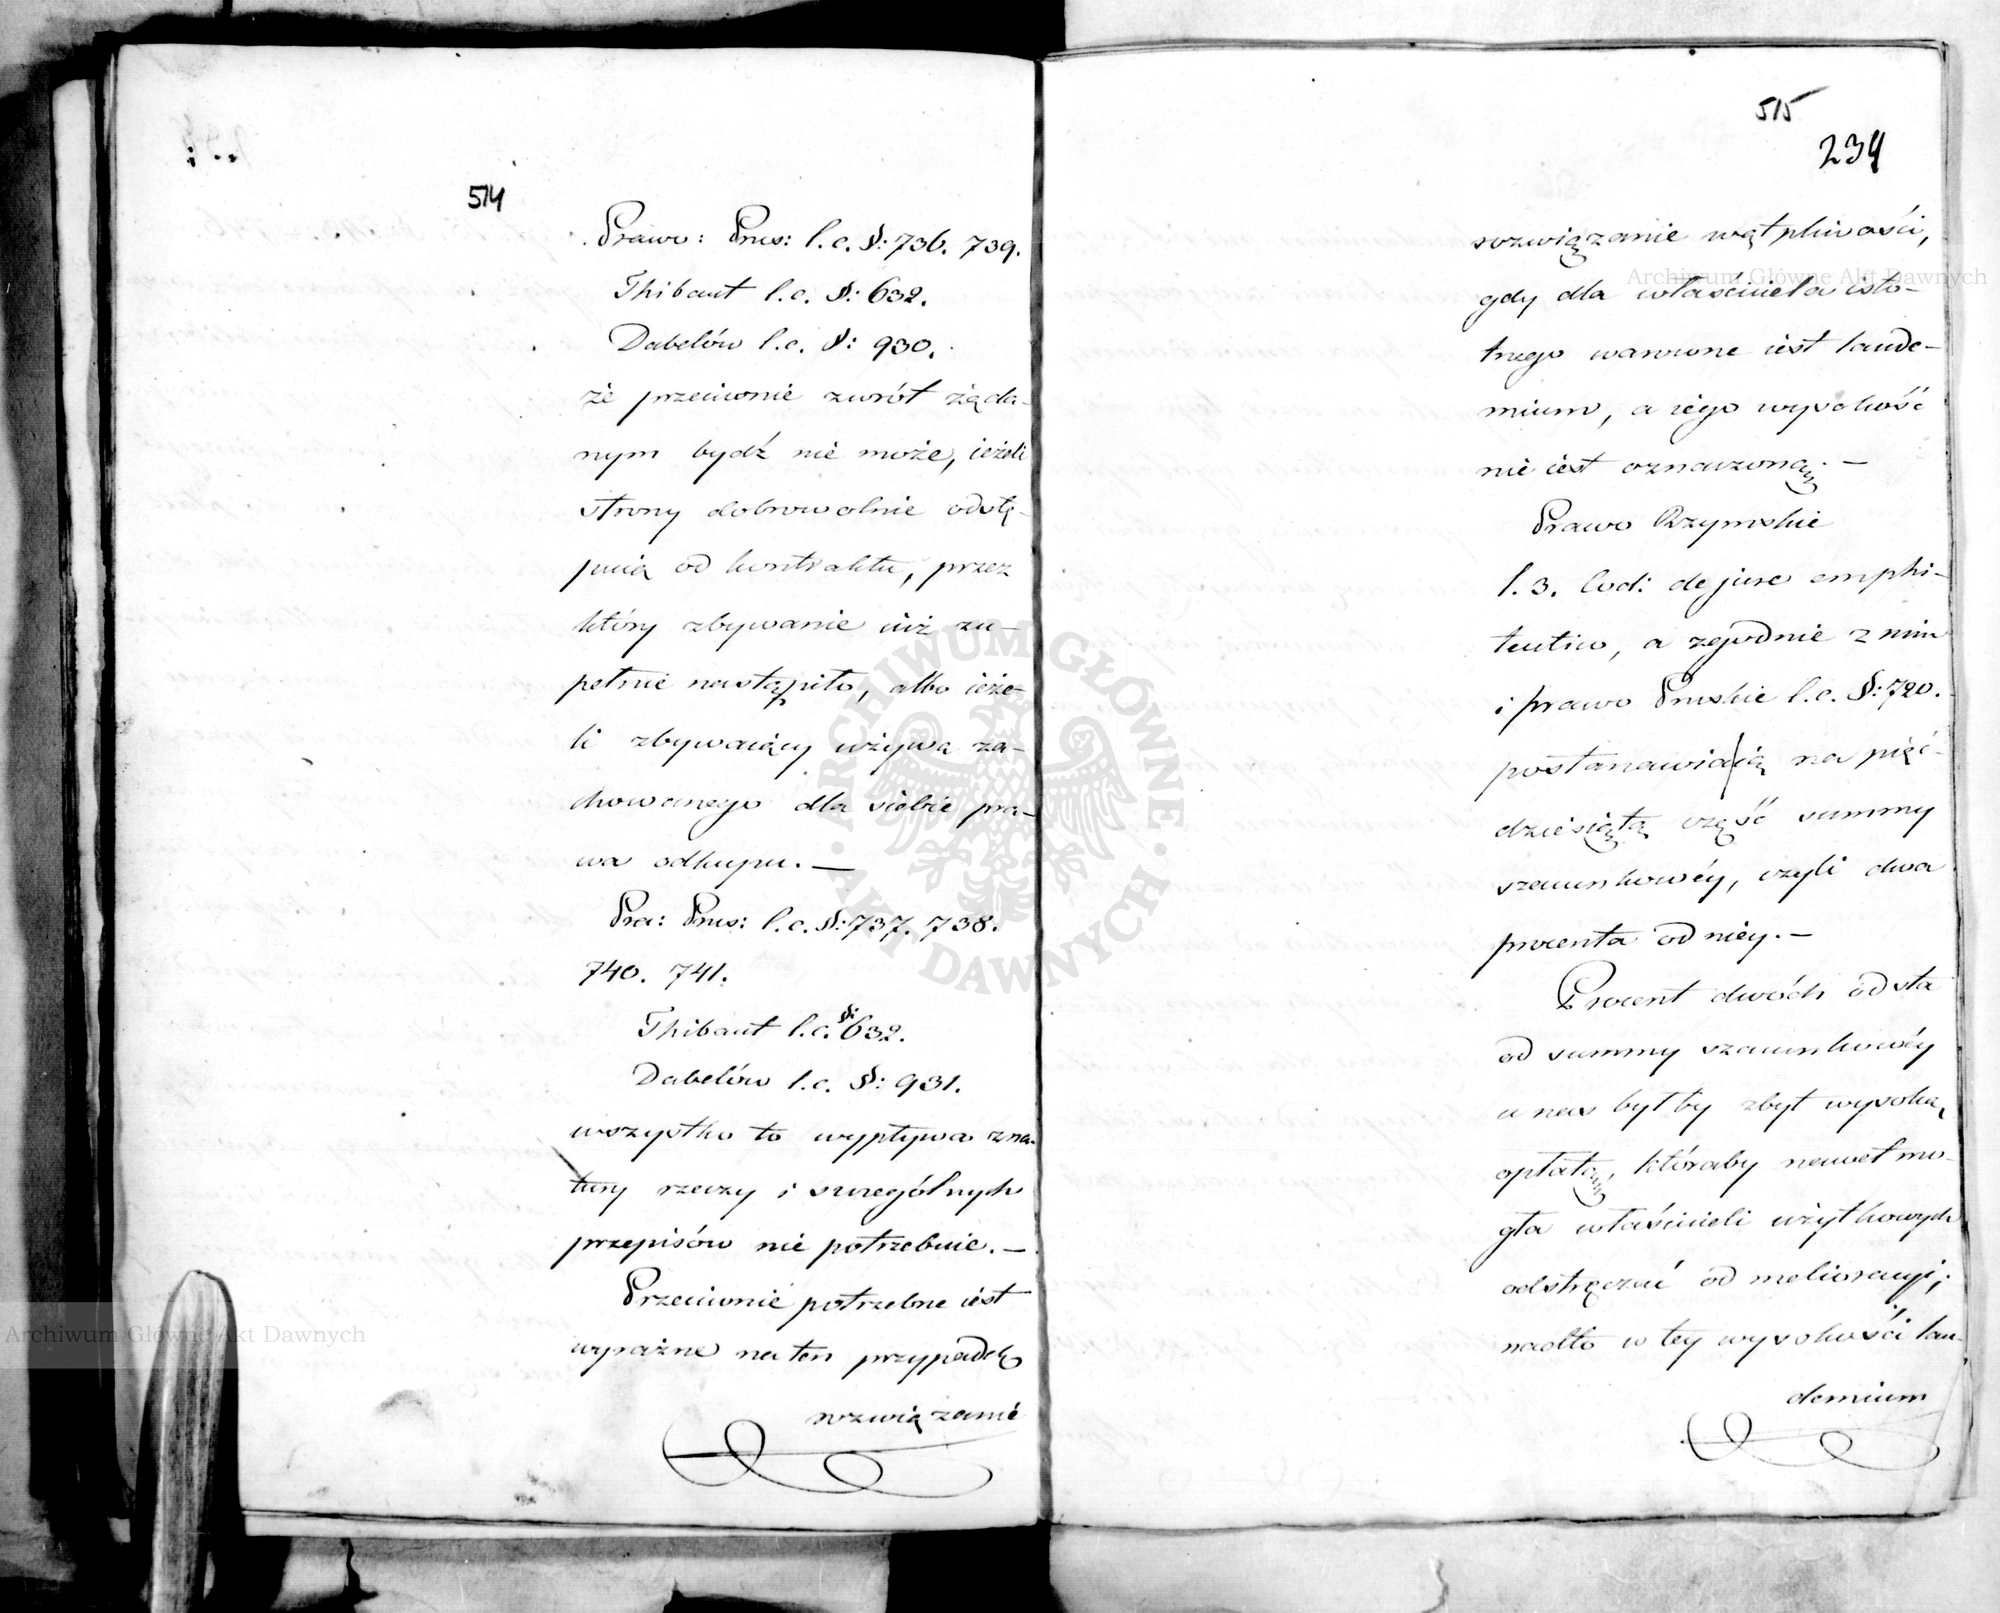 514
Prawo: Prus: l. c. §: 736. 739.
Thibaut l. c. §: 632.
Dabelów l. c. §: 930.
że przeciwnie zwrót żąda-
nym bydź nie może, ieżeli
strony dobrowolnie odstę-
puią od kontraktu, przez
który zbywanie iuż zu-
pełnie nastąpiło, albo ieże-
li zbywaiący używa za-
chowanego dla siebie pra-
wa odkupu. —
Pra: Prus: l. c. §: 737. 738.
740. 741.
Thibaut l. c. §: 632.
Dabelów l. c. §: 931.
wszystko to wypływa z na-
tury rzeczy i szczególnych
przepisów nie potrzebuie. —
Przeciwnie potrzebne iest
wyraźne na ten przypadek
rozwiązanie
515
234
rozwiązanie wątpliwości,
gdy dla właściciela isto-
tnego warowne iest laude-
mium, a iego wysokość
nie iest oznaczoną. —
Prawo Rzymskie
l. 3. Cod: de jure emphi-
teutico, a zgodnie z nim
i prawo Pruskie l. c. §: 720.
postanawiaią na pięć-
dziesiątą część summy
szacunkowéy, czyli dwa
procenta od niéy. —
Procent dwóch od sta
od summy szacunkowéy
u nas byłby zbyt wysoką
opłatą, któraby nawet mo-
gła właścicieli użytkowych
odstręczać od melioracyi;
nadto w tey wysokości lau-
demium
ARCHIWUM GŁÓWNE AKT DAWNYCH
Archiwum Główne Akt Dawnych
Archiwum Główne Akt Dawnych